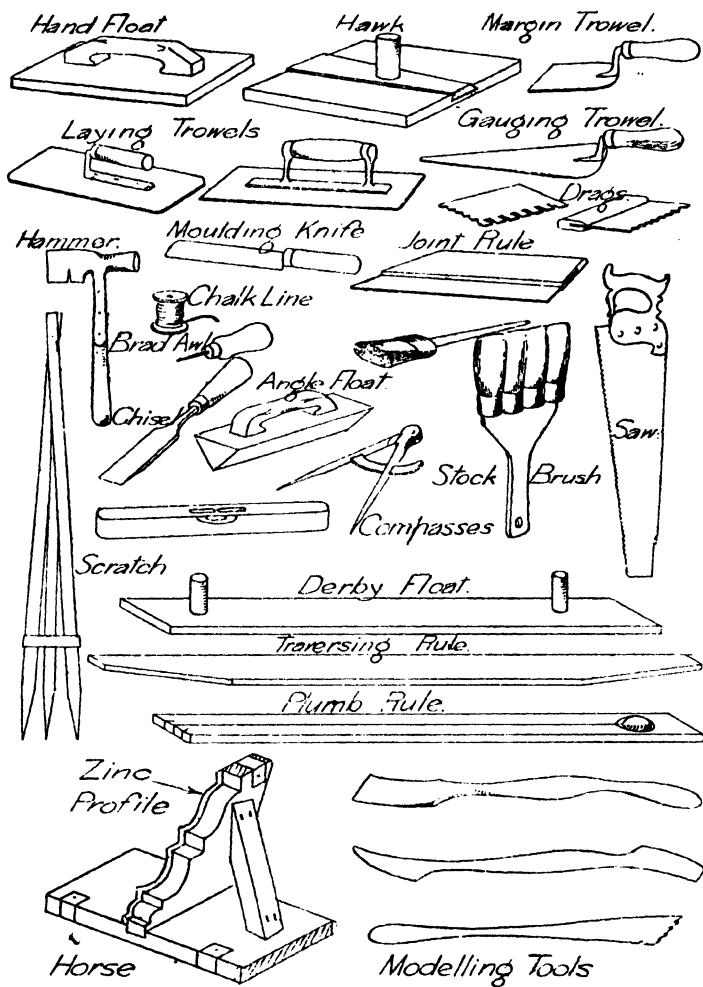 Hand Float
Hawk
Margin Trowel.
Laying Trowels
Gauging Trowel.
Drags.
Hammer.
Moulding Knife
Joint Rule
Chalk Line
Brad Awl
Angle Float.
Chisel
Saw.
Stock Brush
Compasses
Scratch
Derby Float.
Traversing Rule.
Plumb Rule.
Zinc
Profile
Horse
Modelling Tools